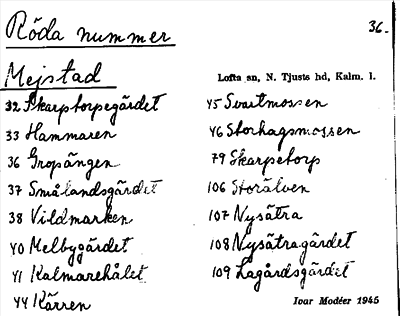 Röda nummer
36.
Mejstad
Lofta sn, N. Tjusts hd, Kalm. l.
32 Skarpstorpegärdet
33 Hammaren
36 Gropängen
37 Smålandsgärdet
38 Vildmarken
40 Melbygärdet
41 Kalmarehålet
44 Kärren
45 Svartmossen
46 Storhagsmossen
79 Skarpetorp
106 Storälven
107 Nysätra
108 Nysätragärdet
109 Lagårdsgärdet
Ivar Modéer 1945